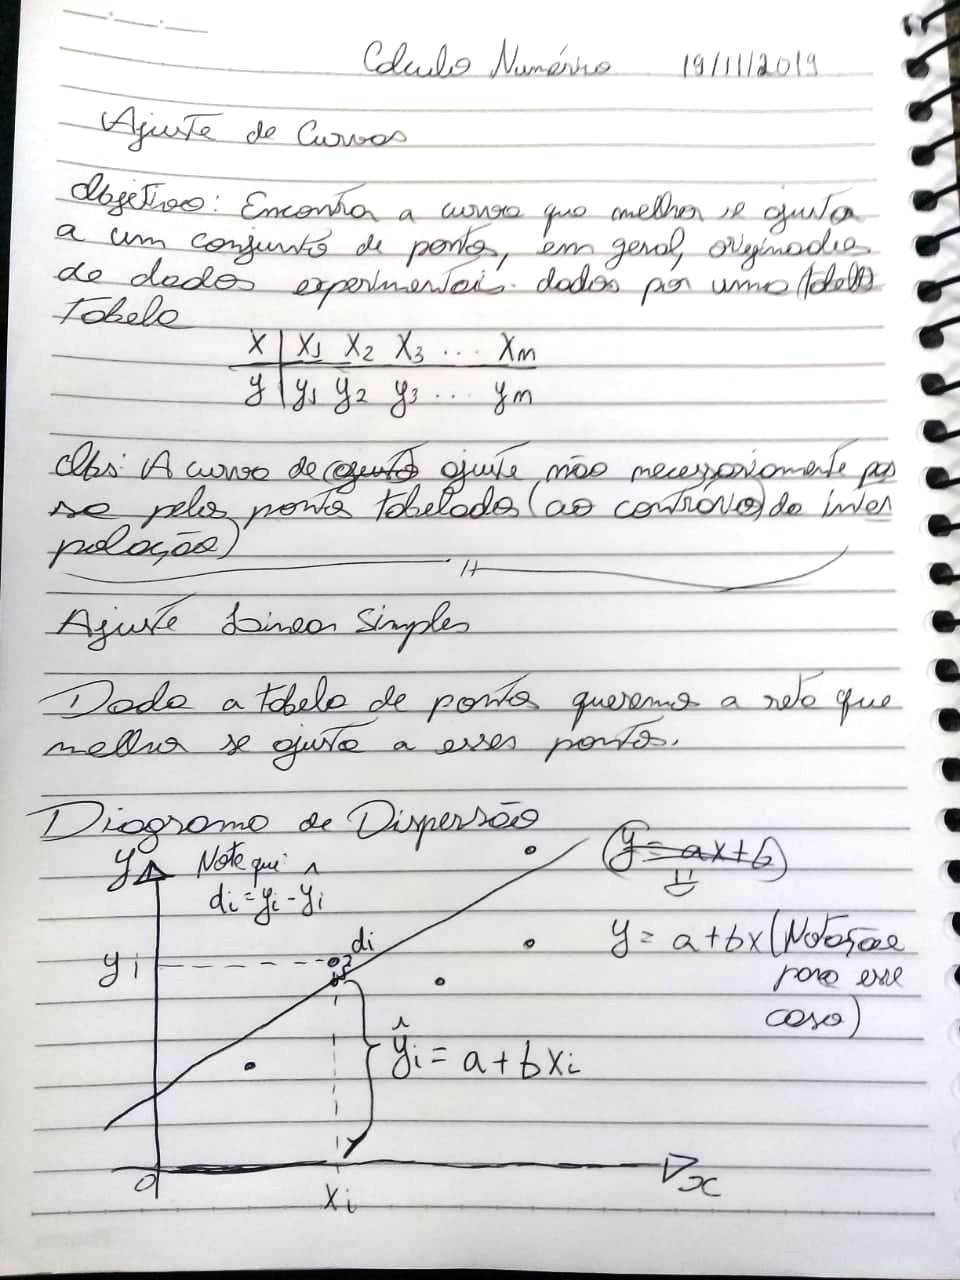 Cálculo Numérico 19/11/2019
Ajuste de Curvas
Objetivo: Encontra a curva que melhor se ajusta
a um conjunto de pontos, em geral, originados
de dados experimentais. dados por uma
Tabela
x | x1 x2 x3 ... xm
y | y1 y2 y3 ... ym
Obs: A curva de ajuste não necessariamente pas
se pelos pontos tabelados (ao contrário da inter
polação)
Ajuste Linear Simples
Dada a tabela de pontos queremos a reta que
melhor se ajusta a esses pontos.
Diagrama de Dispersão
y Note que:
di = yi - ŷi
(y = ax + b)
di
y = a + bx (Notação
para esse
caso)
yi
ŷi = a + bxi
0 xi x